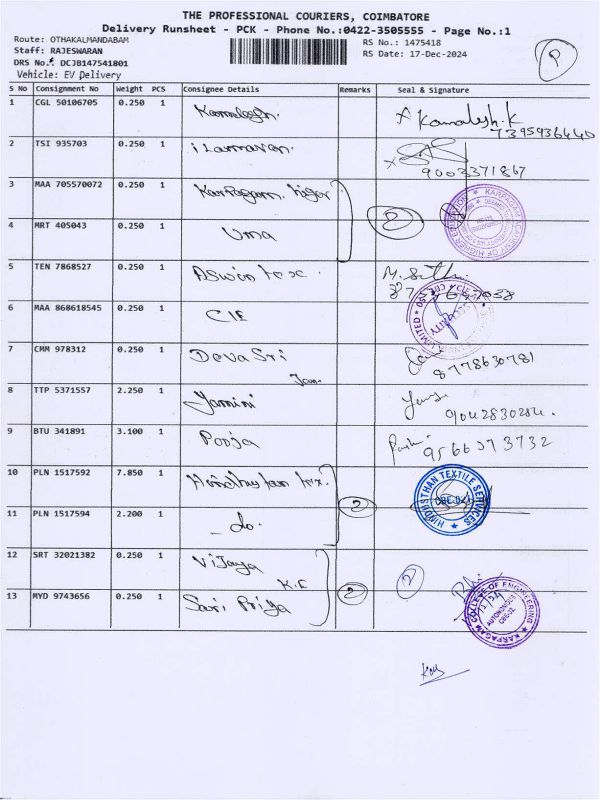 THE PROFESSIONAL COURIERS, COIMBATORE
Delivery Runsheet - PCK - Phone No.:0422-3505555 - Page No.:1
Route: OTHAKALMANDABAM RS No.: 1475418
Staff: RAJESWARAN RS Date: 17-Dec-2024
DRS No.: DCJB147541801
Vehicle: EV Delivery
S No Consignment No Weight PCS Consignee Details Remarks Seal & Signature
1 CGL 50106705 0.250 1 Kamalesh. Kamalesh.K
7395936440
2 TSI 935703 0.250 1
9003371867
3 MAA 705570072 0.250 1 Karpagam
4 MRT 405043 0.250 1 Uma 2
5 TEN 7868527 0.250 1 Aswin tex
6 MAA 868618545 0.250 1 CIE
7 CMM 978312 0.250 1 Deva Sri 8778630781
8 TTP 5371557 2.250 1 Yamini 9042830284.
9 BTU 341891 3.100 1 Pooja 9566373732
10 PLN 1517592 7.850 1 tex. HINDUSTHAN TEXTILE SERVICES
11 PLN 1517594 2.200 1 do. 2
12 SRT 32021382 0.250 1 Vijaya 2
K.E
13 MYD 9743656 0.250 1 Sari Priya 2 KARPAGAM COLLEGE OF ENGINEERING
AUTONOMOUS